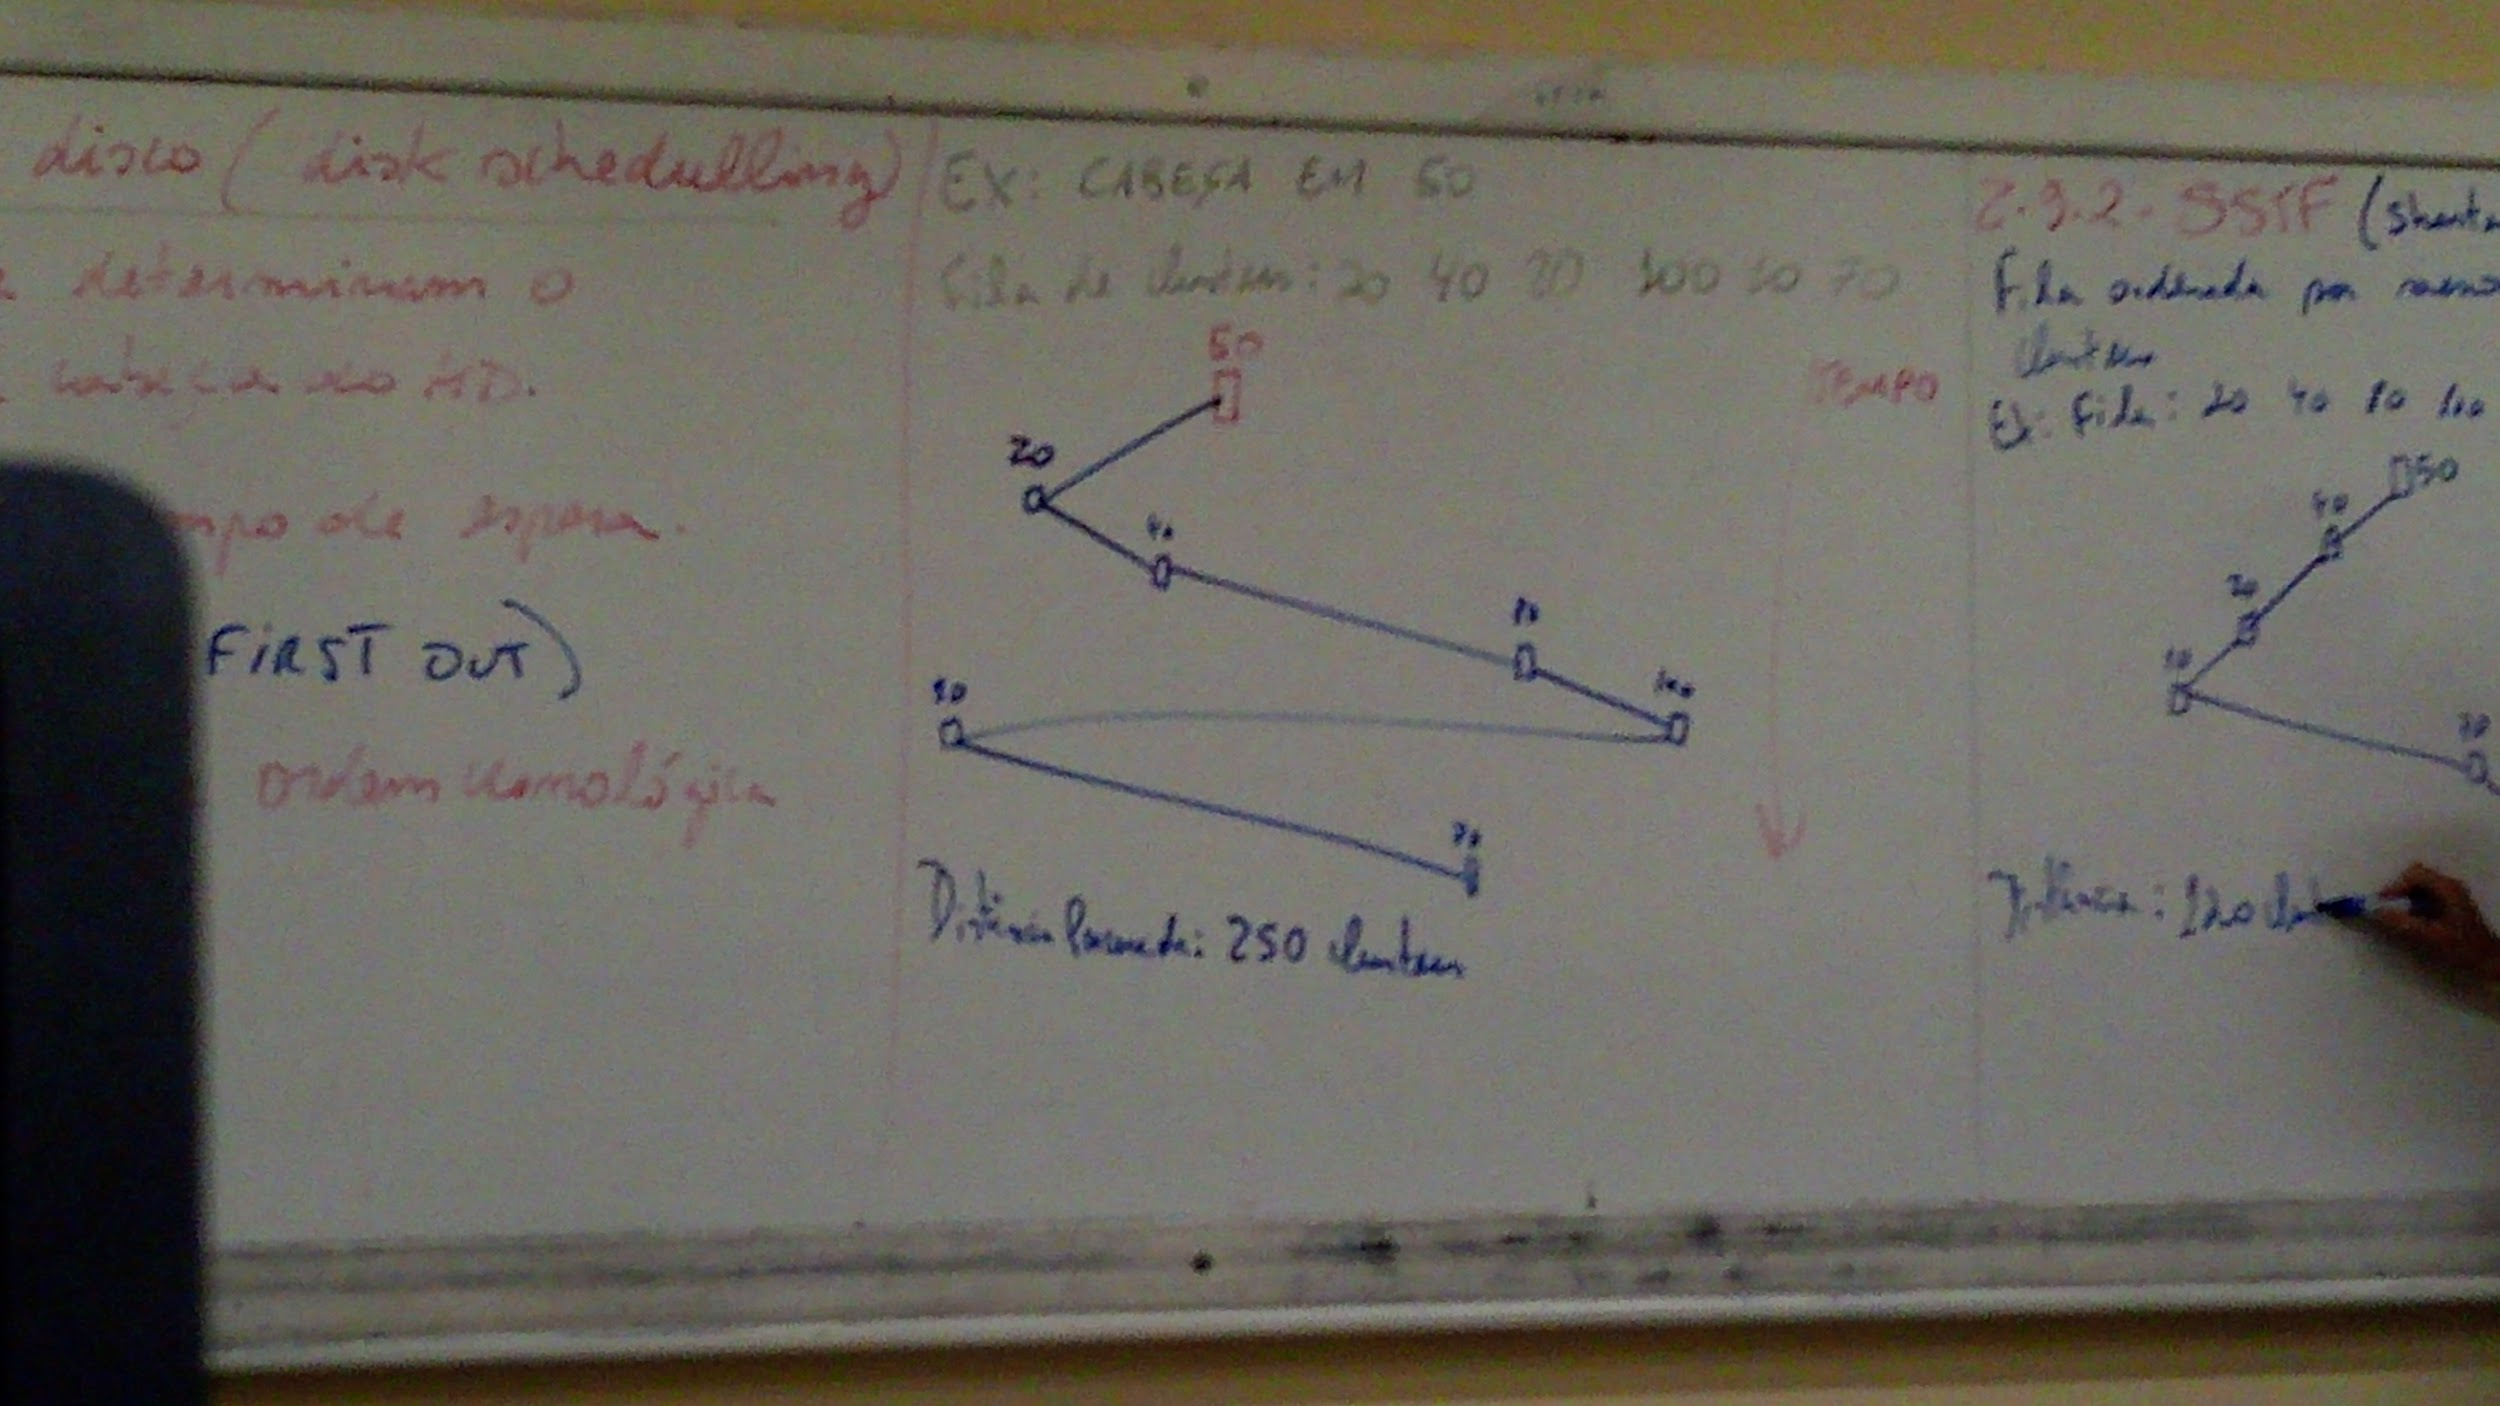 disco (disk schedulling)
determinam o
cabeça do HD.
mpo de espera.
FIRST OUT)
ordem cronológica
EX: CABEÇA EM 50
Fila de clusters: 20 40 80 100 10 70
50
TEMPO
20
40
80
100
10
70
Distância Percorrida: 250 clusters
2.3.2- SSTF (Shortes
Fila ordenada por
clusters
Ex: Fila: 20 40 80 100
50
40
20
10
70
Distância: 130